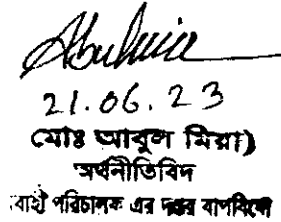 21.06.23
মোঃ আবুল মিয়া)
অর্থনীতিবিদ
বাহী পরিচালক এর দপ্তর বাপবিবো